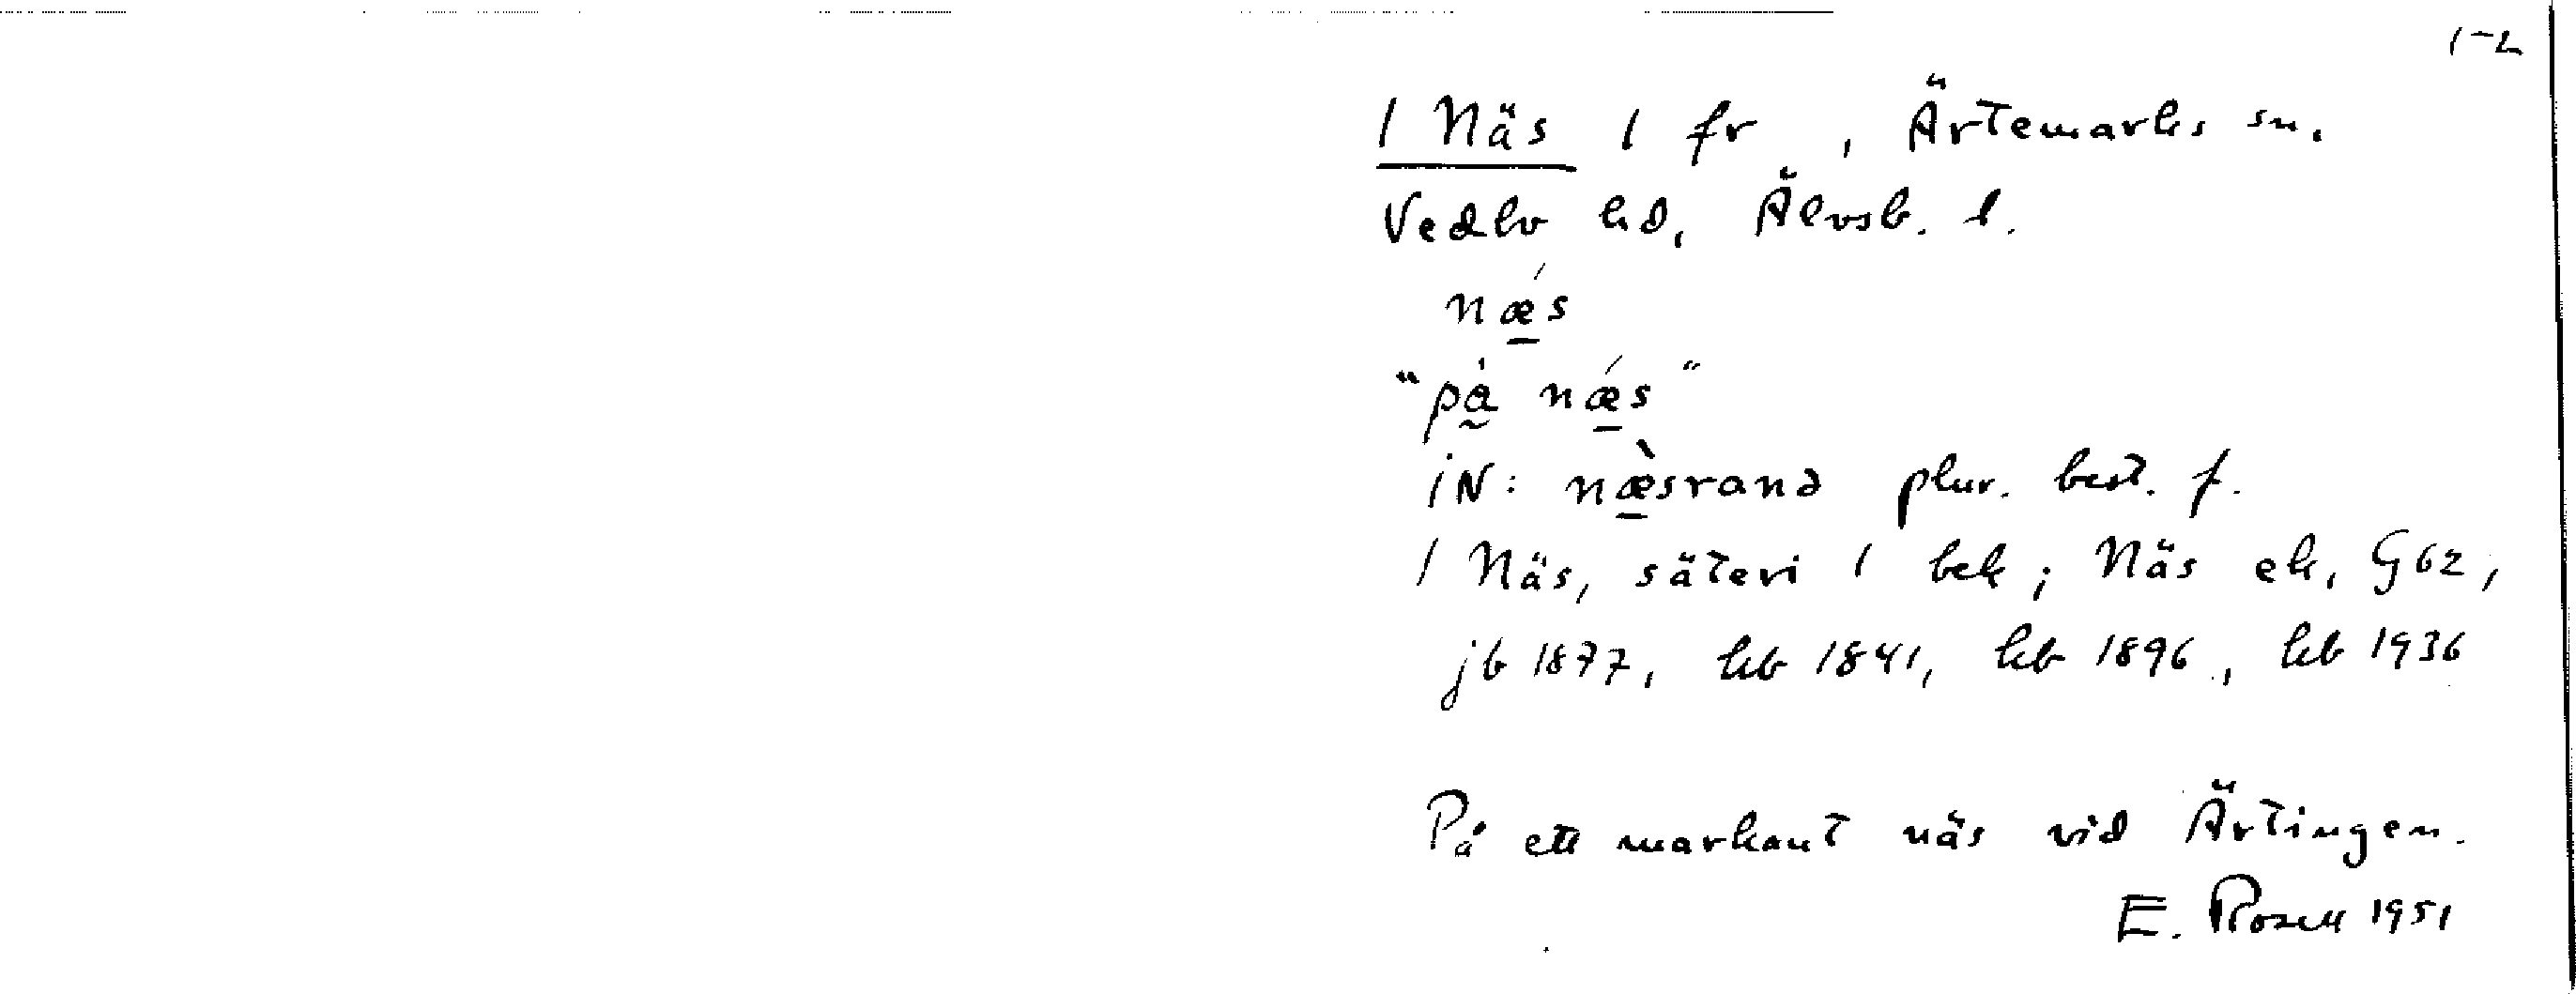 1-2
1 Näs 1 fr , Ärtemarks sn.
Vedbo hd, Älvsb. l.
nǽ̲s
"på̰ nǽ̲s"
iN: næ̲̀srana plur. best. f.
1 Näs, säteri 1 bek; Näs ek, G 62,
jb 1877, kb 1841, kb 1896, kb 1936
På ett markant näs vid Ärtingen.
E. Rosell 1951